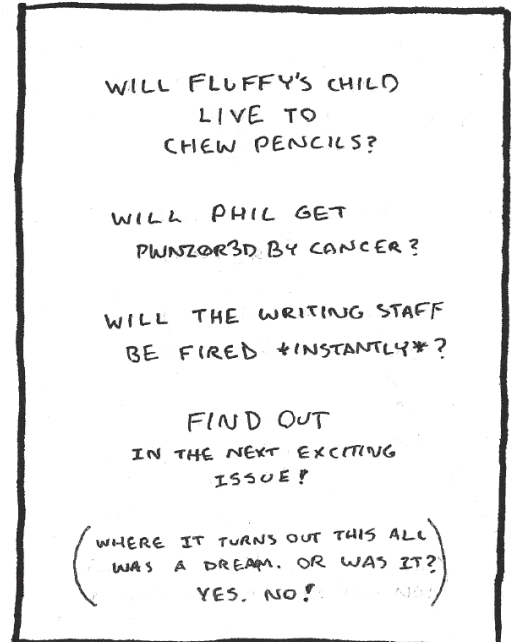 WILL FLUFFY'S CHILD
LIVE TO
CHEW PENCILS?
WILL PHIL GET
PWNZØR3D BY CANCER?
WILL THE WRITING STAFF
BE FIRED *INSTANTLY*?
FIND OUT
IN THE NEXT EXCITING
ISSUE!
(WHERE IT TURNS OUT THIS ALL
WAS A DREAM. OR WAS IT?
YES. NO!)